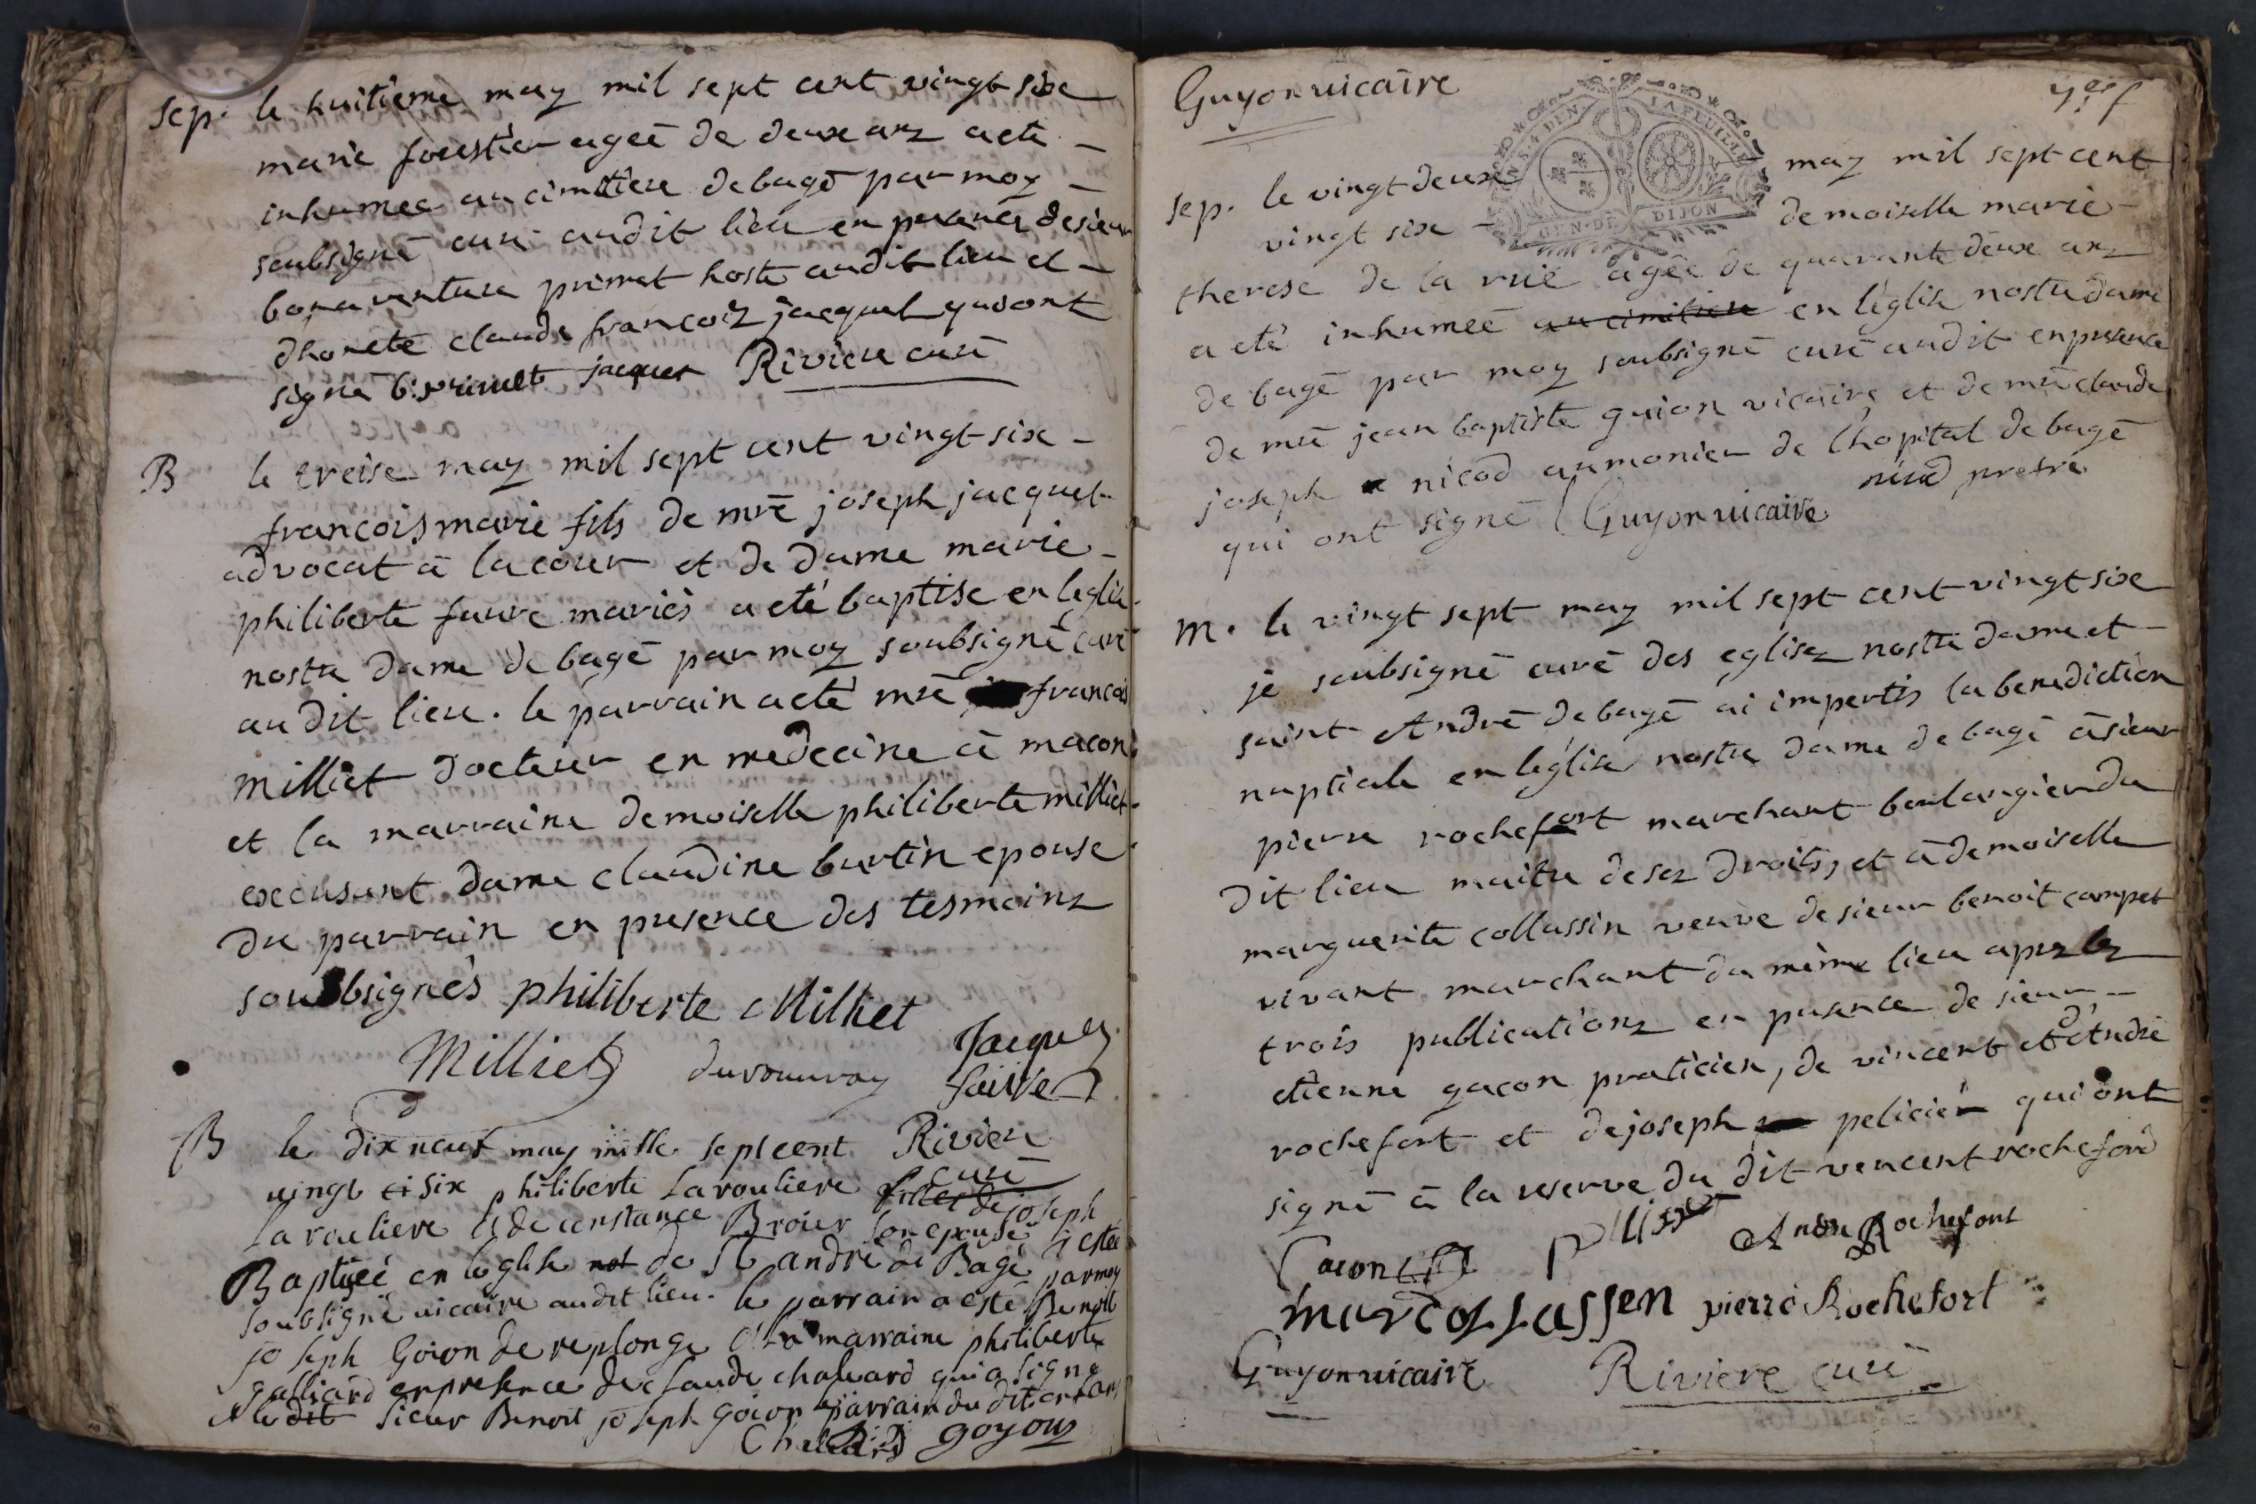 sep. le huitieme may mil sept cent vingt six
marie forestier ageé de deux anz a eté
inhumeé au cimitiere de bagé par moy
soubsigné curé audit lieu en presence de sieur
bonaventure primet hoste audit lieu et
dhonete claude françoiz jacquet qui ont
signé b: jacquet Riviere curé
B le treise may mil sept cent vingt six
françois marie fils de mre joseph jacquet
advocat à la cour et de dame marie
philiberte favre mariés a eté baptisé en leglise
nostre dame de bagé par moy soubsigné curé
au dit lieu. le parrain a eté mre françois
Milliet docteur en medecine à macon
et la marraine demoiselle philiberte milliet
excusant dame claudine burtin epouse
du parrain en presence des tesmoinz
soubsignés philiberte Milliet
Milliet duvouvray Jacquet
faivre
B le dix neuf may mille sept cent Riviere
vingt et six philiberte Larouliere curé
fille de joseph
Larouliere et de constance Broier son epouse a estée
Baptiseé en leglise not de St andré de Bagé par moy
soubsigné vicaire audit lieu. le parrain a esté Benoit
joseph Goion de replonge et la marraine philiberte
galliard en presence de claude chaluard qui a signé
et ledit sieur Benoit joseph Goion parrain du dit enfant
goyon
Guyon vicaire
GEN. DE DIJON
sep. le vingt deux may mil sept cent
vingt six demoiselle marie
therese de la rue ageé de quarante deux anz
a eté inhumeé au cimitiere en l'église nostre dame
de bagé par moy soubsigné curé audit en presence
de mre jean baptiste guion vicaire et de mre claude
joseph nicod aumonier de l'hopital de bagé
qui ont signé Guyon vicaire nicod pretre
m. le vingt sept may mil sept cent vingt six
je soubsigné curé des eglisez nostre dame et
saint André de bagé ai impertis la benediction
nuptiale en l'église nostre dame de bagé à sieur
pierre rochefort marchant boulangier du
dit lieu maitre de sez droits, et à demoiselle
marguerite collassin veuve de sieur benoit campet
vivant marchant du même lieu aprez lez
trois publicationz en presence de sieur
etienne gacon praticien, de vincent et d'André
rochefort et de joseph pelicier qui ont
signé à la reserve du dit vencent rochefort
Gacon Andre Rochefort
mar collassen pierre Rochefort
Guyon vicaire Riviere curé